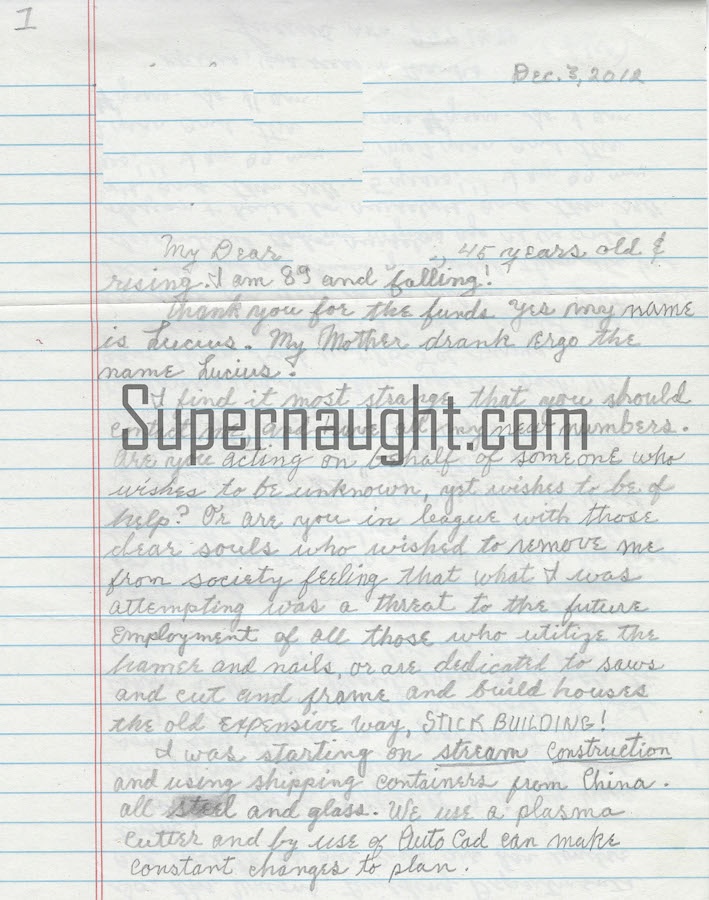 1
Dec. 3, 2012
My Dear , 45 years old &
rising. I am 89 and falling!
Thank you for the funds Yes my name
is Lucius. My Mother drank Ergo the
name Lucius.
I find it most strange that you should
contact me, and have all my near numbers.
Supernaught.com
Are you acting on behalf of someone who
wishes to be unknown, yet wishes to be of
help? Or are you in league with those
dear souls who wished to remove me
from society feeling that what I was
attempting was a threat to the future
Employment of all those who utilize the
hamer and nails, or are dedicated to saws
and cut and frame and build houses
the old Expensive way, STICK BUILDING!
I was starting on stream Construction
and using shipping containers from China.
all steel and glass. We use a plasma
Cutter and by use of Auto Cad can make
constant changes to plan.